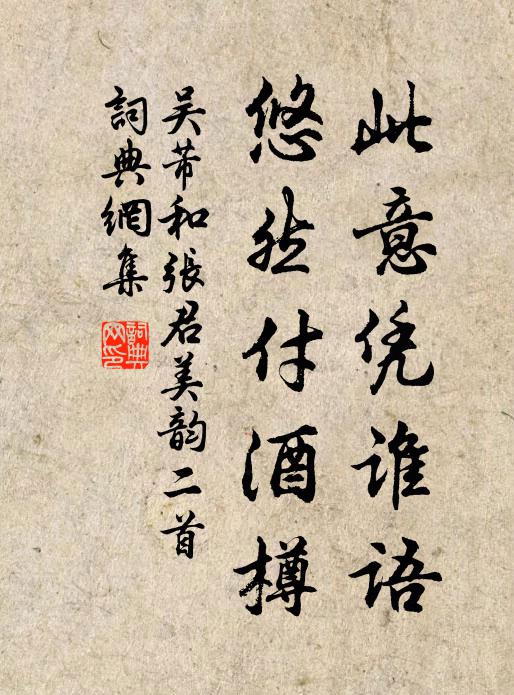 此意凭谁语
悠然付酒樽
吴芾和张君美韵二首
詞典網集
詞典網印